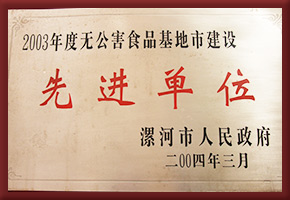 2003年度无公害食品基地市建设
先进单位
漯河市人民政府
二00四年三月